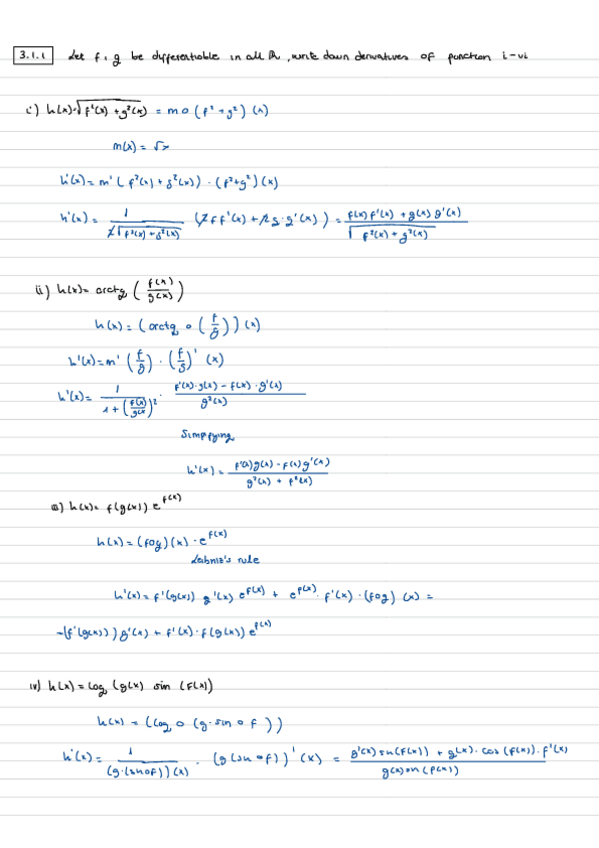 3.1.1 Let f, g be differentiable in all ℝ, write down derivatives of function i-vi
i) h(x)=√(f²(x)+g²(x)) = m o (f²+g²)(x)
m(x) = √x
h'(x) = m'(f²(x)+g²(x)) · (f²+g²)(x)
h'(x) = 1/(2√(f²(x)+g²(x))) (2ff'(x)+2g·g'(x)) = (f(x)f'(x)+g(x)g'(x))/√(f²(x)+g²(x))
ii) h(x) = arctg (f(x)/g(x))
h(x) = (arctg o (f/g))(x)
h'(x) = m'(f/g) · (f/g)'(x)
h'(x) = 1/(1+(f(x)/g(x))²) · (f'(x)·g(x) – f(x)·g'(x))/g²(x)
Simplifying
h'(x) = (f'(x)g(x) – f(x)g'(x))/(g²(x) + f²(x))
iii) h(x) = f(g(x)) e^f(x)
h(x) = (fog)(x) · e^f(x)
Leibniz's rule
h'(x) = f'(g(x)) g'(x) e^f(x) + e^f(x) · f'(x) · (fog)(x) =
=(f'(g(x))) g'(x) + f'(x) · f(g(x)) e^f(x)
iv) h(x) = log (g(x) sin (f(x))
h(x) = (log o (g·sin o f))
h'(x) = 1/((g·(sinof))(x)) · (g(sin o f))'(x) = (g'(x) sin(f(x)) + g(x)·cos(f(x))·f'(x))/(g(x)sin(f(x)))